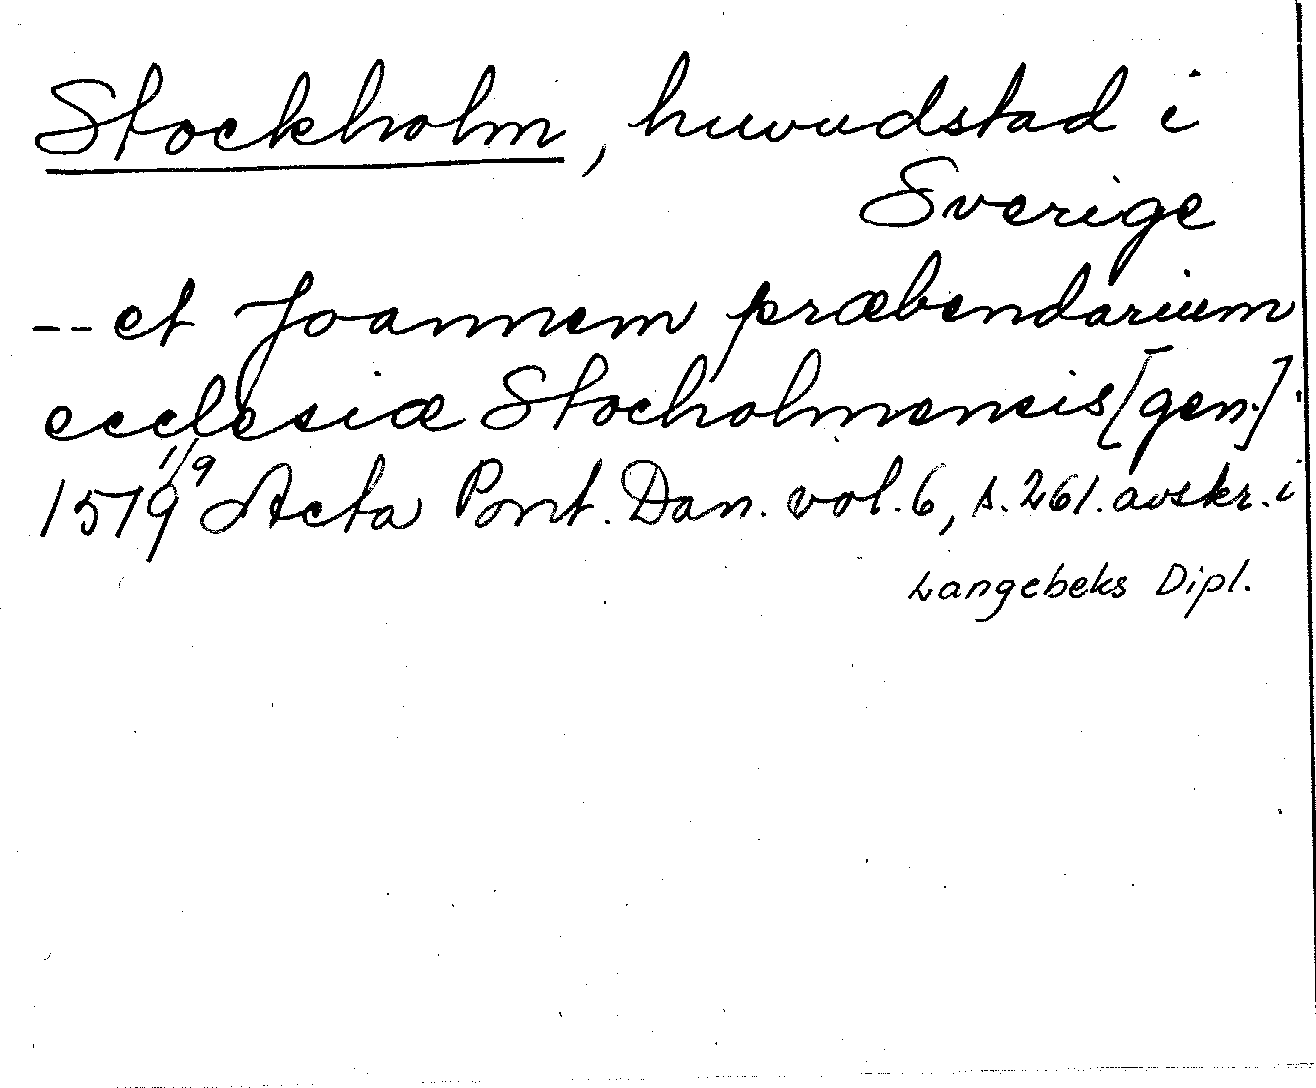 Stockholm, huvudstad i
Sverige
-- et Joannem præbendarium
ecclesiæ Stocholmensis [gen.]
1519 1/9 Acta Pont. Dan. vol. 6, s. 261. avskr. i
Langebeks Dipl.